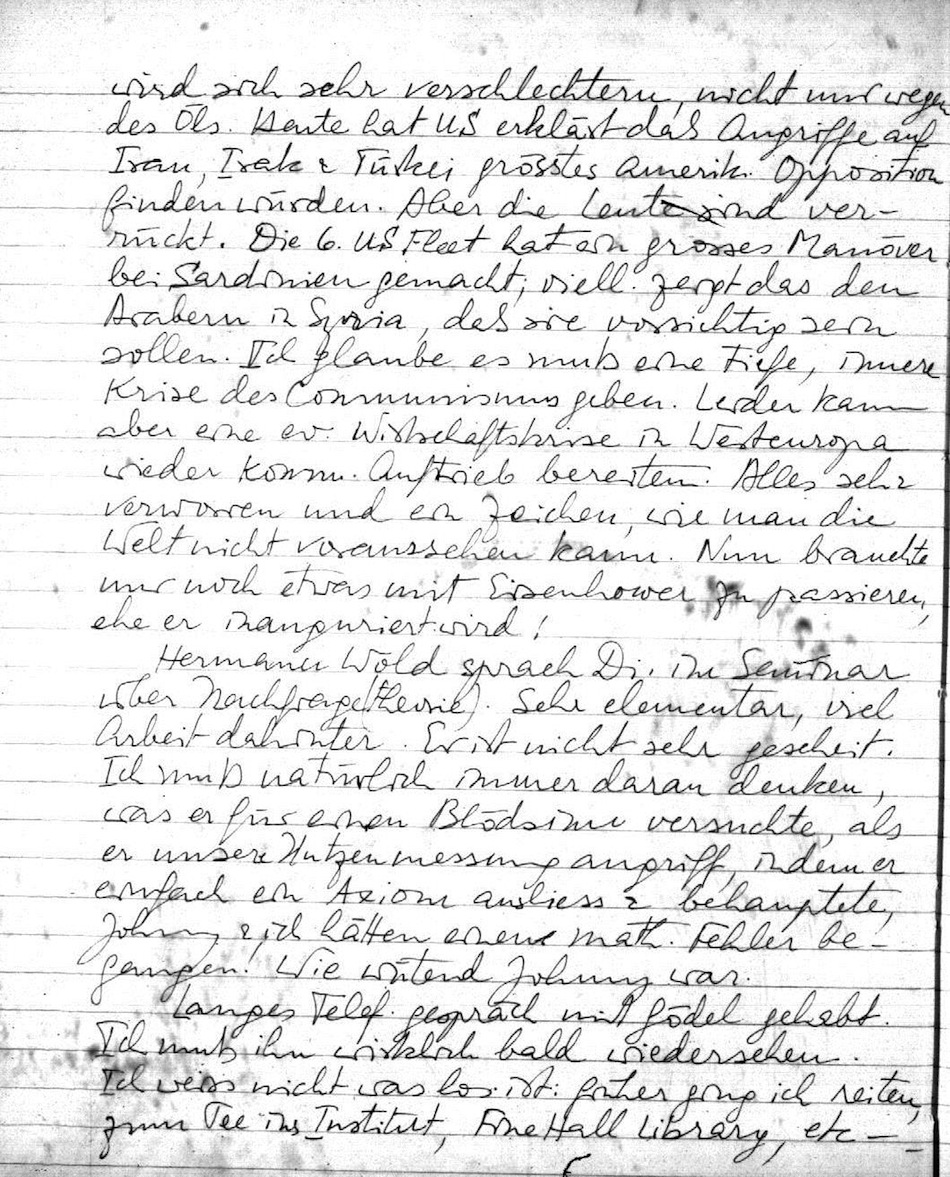 wird sich sehr verschlechtern, nicht nur wegen
des Öls. Heute hat US erklärt daß Angriffe auf
Iran, Irak & Türkei grösstes Amerik. Opposition
finden würden. Aber die Leute sind ver-
rückt. Die 6. US Fleet hat ein grosses Manöver
bei Sardinien gemacht; viell. zeigt das den
Arabern in Syria, daß sie vorsichtig sein
sollen. Ich glaube es muß eine tiefe, innere
Krise des Communismus geben. Leider kann
aber eine ev. Wirtschaftskrise in Westeuropa
wieder komm. Auftrieb bereiten. Alles sehr
verworren und ein Zeichen, wie man die
Welt nicht voraussehen kann. Nun brauchte
nur noch etwas mit Eisenhower zu passieren,
ehe er inauguriert wird!
Hermann Wold sprach Di. im Seminar
über Nachfrage(theorie). Sehr elementar, viel
Arbeit dahinter. Er ist nicht sehr gescheit.
Ich muß natürlich immer daran denken,
was er für einen Blödsinn versuchte, als
er unsere Nutzenmessung angriff, indem er
einfach ein Axiom ausliess & behauptete,
Johnny & ich hätten einen math. Fehler be-
gangen! Wie wütend Johnny war.
Langes Telef. gespräch mit Gödel gehabt.
Ich muß ihn wirklich bald wiedersehen.
Ich weiss nicht was los ist: früher ging ich reiten,
zum Tee ins Institut, Fine Hall Library, etc –